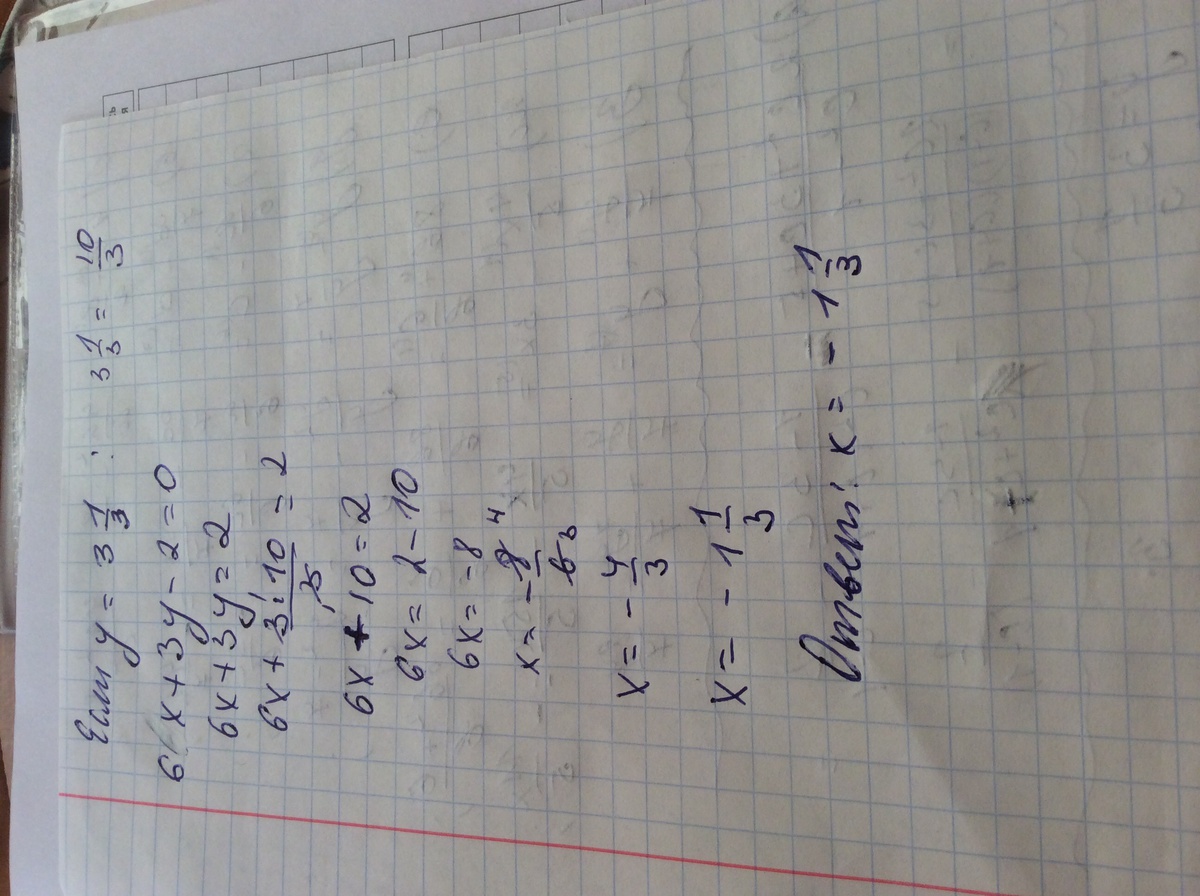 Если y = 3 1/3 : 3 1/3 = 10/3
6x + 3y - 2 = 0
6x + 3y = 2
6x + 3·10/3 = 2
6x + 10 = 2
6x = 2 - 10
6x = -8
x = - 8 4/6 3
x = - 4/3
x = - 1 1/3
Ответ: x = - 1 1/3